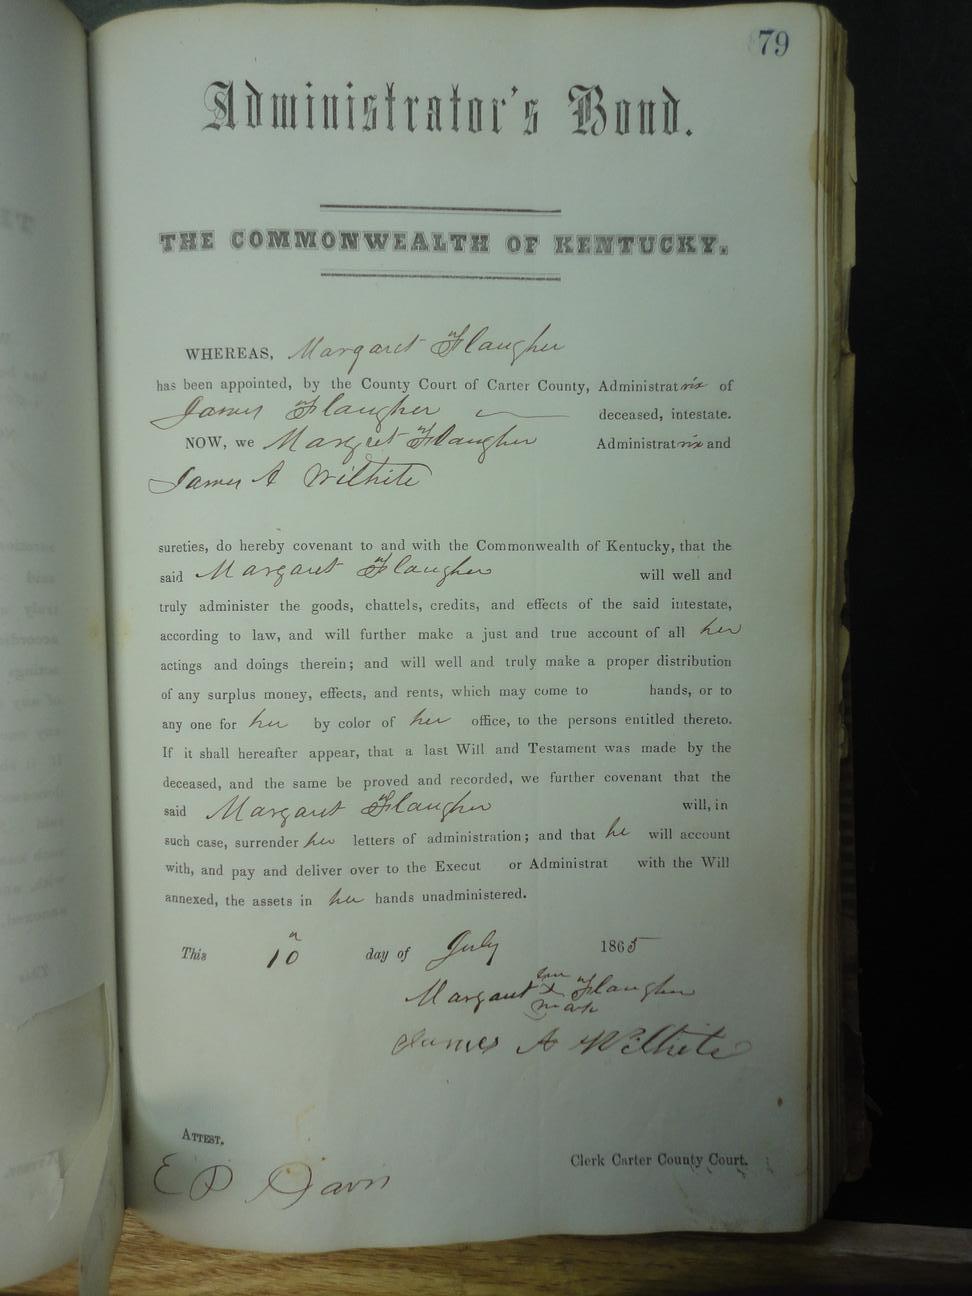 79
Administrator's Bond.
THE COMMONWEALTH OF KENTUCKY.
WHEREAS, Margaret Flaugher
has been appointed, by the County Court of Carter County, Administratrix of
James Flaugher deceased, intestate.
NOW, we Margret Flaugher Administratrix and
James A Wilhite
sureties, do hereby covenant to and with the Commonwealth of Kentucky, that the
said Margaret Flaugher will well and
truly administer the goods, chattels, credits, and effects of the said intestate,
according to law, and will further make a just and true account of all her
actings and doings therein; and will well and truly make a proper distribution
of any surplus money, effects, and rents, which may come to hands, or to
any one for her by color of her office, to the persons entitled thereto.
If it shall hereafter appear, that a last Will and Testament was made by the
deceased, and the same be proved and recorded, we further covenant that the
said Margaret Flaugher will, in
such case, surrender her letters of administration; and that he will account
with, and pay and deliver over to the Execut or Administrat with the Will
annexed, the assets in her hands unadministered.
This 10 day of July 1865
her
Margaret X Flaugher
mark
James A Wilhite
ATTEST.
Clerk Carter County Court.
E D Davis